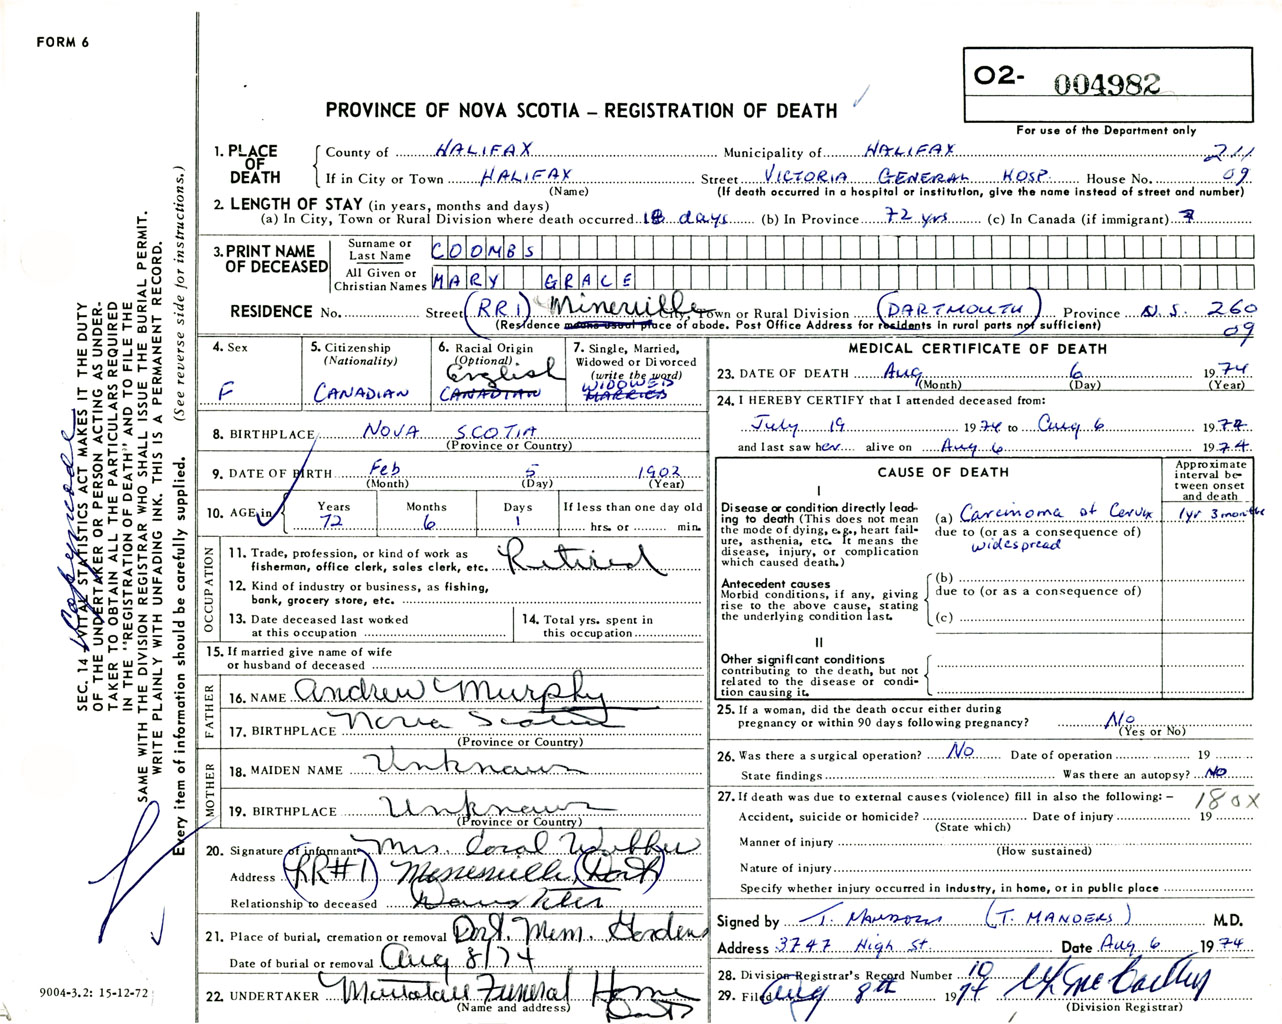 FORM 6
O2- 004982
For use of the Department only
PROVINCE OF NOVA SCOTIA – REGISTRATION OF DEATH
1. PLACE OF DEATH
County of HALIFAX Municipality of HALIFAX 211
If in City or Town HALIFAX Street VICTORIA GENERAL HOSP. House No. 09
(Name) (If death occurred in a hospital or institution, give the name instead of street and number)
2. LENGTH OF STAY (in years, months and days)
(a) In City, Town or Rural Division where death occurred 18 days (b) In Province 72 yrs (c) In Canada (if immigrant)
3. PRINT NAME OF DECEASED
Surname or Last Name COOMBS
All Given or Christian Names MARY GRACE
RESIDENCE No. Street (RR1) Mineville City, Town or Rural Division (DARTMOUTH) Province N.S. 260
(Residence means usual place of abode. Post Office Address for residents in rural parts not sufficient) 09
4. Sex
F
5. Citizenship
(Nationality)
CANADIAN
6. Racial Origin
(Optional)
English
CANADIAN
7. Single, Married,
Widowed or Divorced
(write the word)
WIDOWED
MARRIED
8. BIRTHPLACE NOVA SCOTIA
(Province or Country)
9. DATE OF BIRTH Feb 5 1902
(Month) (Day) (Year)
10. AGE in
Years Months Days If less than one day old
72 6 1 hrs. or min.
OCCUPATION
11. Trade, profession, or kind of work as
fisherman, office clerk, sales clerk, etc. Retired
12. Kind of industry or business, as fishing,
bank, grocery store, etc.
13. Date deceased last worked
at this occupation
14. Total yrs. spent in
this occupation
15. If married give name of wife
or husband of deceased
FATHER
16. NAME Andrew Murphy
17. BIRTHPLACE Nova Scotia
(Province or Country)
MOTHER
18. MAIDEN NAME Unknown
19. BIRTHPLACE Unknown
(Province or Country)
20. Signature of informant Mrs Coral
Address (RR#1) Mineville, (Dart)
Relationship to deceased Daughter
21. Place of burial, cremation or removal Dart. Mem. Gardens
Date of burial or removal Aug 8/74
22. UNDERTAKER Funeral Home
(Name and address) Dart
MEDICAL CERTIFICATE OF DEATH
23. DATE OF DEATH Aug 6 1974
(Month) (Day) (Year)
24. I HEREBY CERTIFY that I attended deceased from:
July 19 1974 to Aug 6 1974
and last saw her alive on Aug 6 1974
CAUSE OF DEATH
Approximate
interval be-
tween onset
and death
I
Disease or condition directly lead-
ing to death (This does not mean
the mode of dying, e.g., heart fail-
ure, asthenia, etc. It means the
disease, injury, or complication
which caused death.)
(a) Carcinoma of Cervix 1yr 3 months
due to (or as a consequence of)
widespread
Antecedent causes
Morbid conditions, if any, giving
rise to the above cause, stating
the underlying condition last.
(b)
due to (or as a consequence of)
(c)
II
Other significant conditions
contributing to the death, but not
related to the disease or condi-
tion causing it.
25. If a woman, did the death occur either during
pregnancy or within 90 days following pregnancy? No
(Yes or No)
26. Was there a surgical operation? No Date of operation 19
State findings Was there an autopsy? NO
27. If death was due to external causes (violence) fill in also the following: – 180X
Accident, suicide or homicide? Date of injury 19
(State which)
Manner of injury
(How sustained)
Nature of injury
Specify whether injury occurred in industry, in home, or in public place
Signed by (T. MANDERS) M.D.
Address 3747 High St. Date Aug 6 1974
28. Division Registrar's Record Number 10
29. Filed Aug 8th 1974
(Division Registrar)
SEC. 14 VITAL STATISTICS ACT MAKES IT THE DUTY
OF THE UNDERTAKER OR PERSON ACTING AS UNDER-
TAKER TO OBTAIN ALL THE PARTICULARS REQUIRED
IN THE "REGISTRATION OF DEATH" AND TO FILE THE
SAME WITH THE DIVISION REGISTRAR WHO SHALL ISSUE THE BURIAL PERMIT.
WRITE PLAINLY WITH UNFADING INK. THIS IS A PERMANENT RECORD.
Every item of information should be carefully supplied. (See reverse side for instructions.)
9004-3.2: 15-12-72